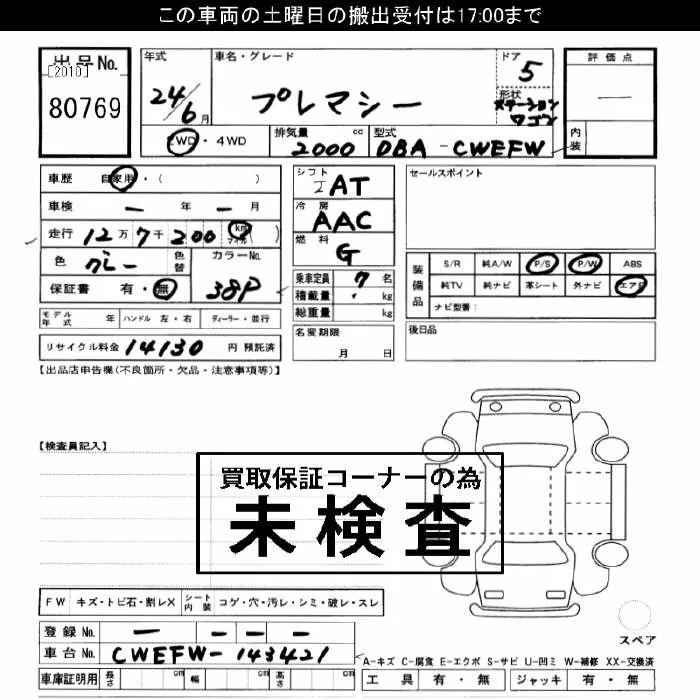 この車両の土曜日の搬出受付は17:00まで
出品No.
[2010]
80769
年式
24/6月
車名・グレード
プレマシー
ドア
5
形状
ステーションワゴン
評価点
―
内装
2WD・4WD
排気量 cc
2000
型式
DBA-CWEFW
車歴 自家用・( )
車検 ー 年 ー 月
走行 12万7千200 km マイル ( )
色 グレー 色替 カラーNo. 38P
保証書 有・無
モデル年式 年 ハンドル 左・右 ディーラー・並行
リサイクル料金 14130 円 預託済
シフト IAT
冷房 AAC
燃料 G
乗車定員 7 名
積載量 ・ kg
総重量 kg
名変期限
月 日
セールスポイント
装備品
S/R 純A/W P/S P/W ABS
純TV 純ナビ 革シート 外ナビ エアB
ナビ型番:
後日品
【出品店申告欄(不良箇所・欠品・注意事項等)】
【検査員記入】
買取保証コーナーの為
未検査
FW キズ・トビ石・割レX シート内装 コゲ・穴・汚レ・シミ・破レ・スレ
登録No. ー ー ー ー
車台No. CWEFW-143421
車庫証明用 長さ cm 幅 cm 高さ cm
スペア
A-キズ C-腐食 E-エクボ S-サビ U-凹ミ W-補修 XX-交換済
工具 有・無 ジャッキ 有・無